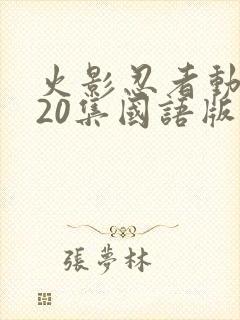 火影忍者動
20集國語版
張夢林